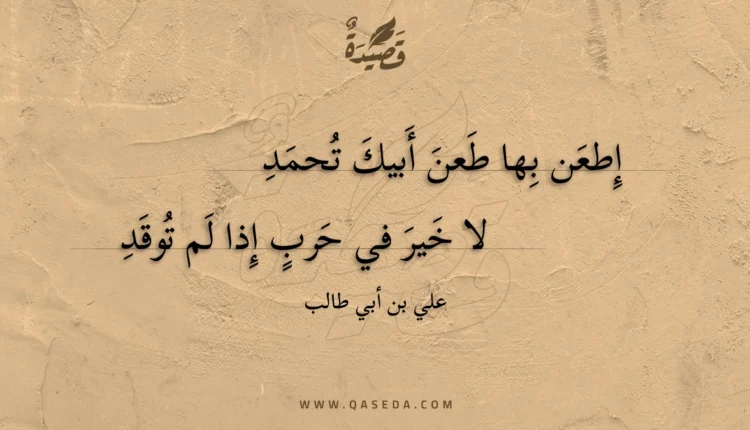 قَصِيدَةٌ
إِطعَن بِها طَعنَ أَبيكَ تُحمَدِ
لا خَيرَ في حَربٍ إِذا لَم تُوقَدِ
علي بن أبي طالب
WWW.QASEDA.COM